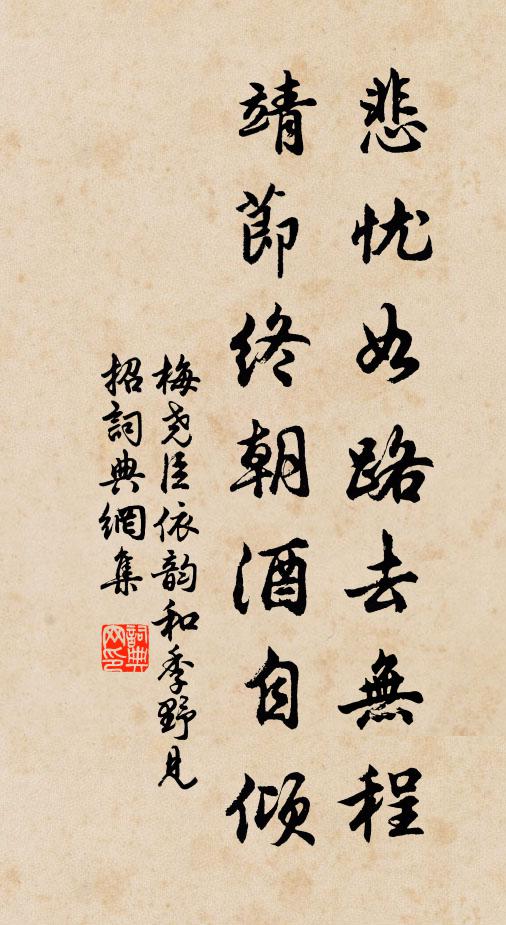 悲忧如路去無程
靖節終朝酒自倾
梅尧臣依韵和季野見
招詞典網集
詞典
网印